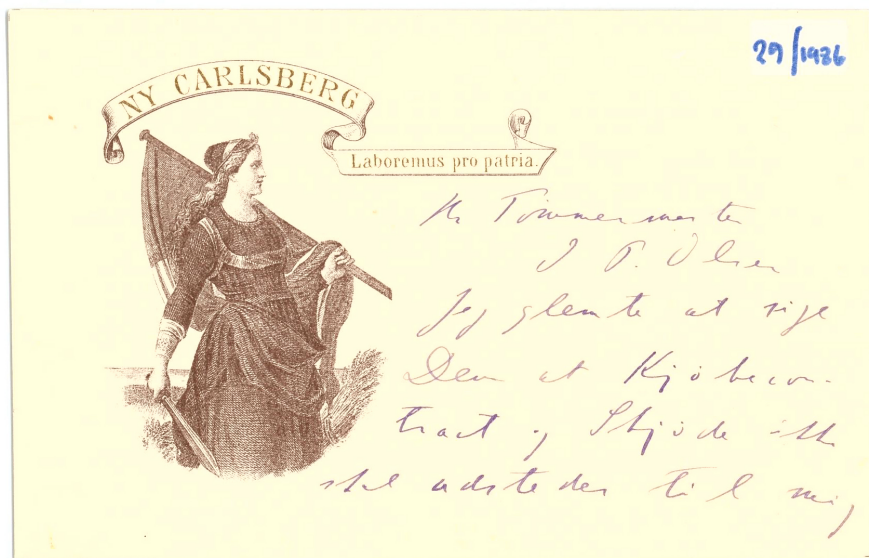 29/1936
NY CARLSBERG
Laboremus pro patria.
Hr Tømmermester
J. P. Olsen
Jeg glemte at sige
Dem at Kjøbecon-
tract og Skjøde ikke
skal udstedes til mig